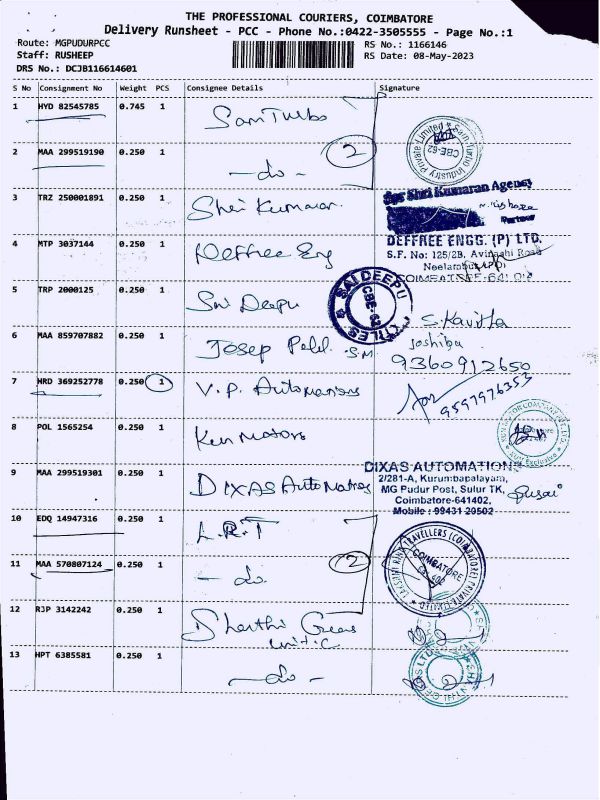 THE PROFESSIONAL COURIERS, COIMBATORE
Delivery Runsheet - PCC - Phone No.:0422-3505555 - Page No.:1
Route: MGPUDURPCC RS No.: 1166146
Staff: RUSHEEP RS Date: 08-May-2023
DRS No.: DCJB116614601
S No Consignment No Weight PCS Consignee Details Signature
1 HYD 82545785 0.745 1 Sam Turbo
Sam Turbo Industry Private Limited
CBE-62
2 MAA 299519190 0.250 1 - do - 2
3 TRZ 250001891 0.250 1 Shri Kumaran
For Shri Kumaran Agency
Partner
4 MTP 3037144 0.250 1 Deffree Eng
DEFFREE ENGG. (P) LTD.
S.F. No: 125/2B, Avinashi Road
5 TRP 2000125 0.250 1 Sri Deepu
SAI DEEPU
CBE-62
S. Kavitha
6 MAA 859707882 0.250 1 S.M.
Joshiba
9360912650
7 HRD 369252778 0.250 1 V.P. Automations
9597976353
8 POL 1565254 0.250 1 Ken Motors
9 MAA 299519301 0.250 1 DIXAS Automations
DIXAS AUTOMATIONS
2/281-A, Kurumbapalayam,
MG Pudur Post, Sulur TK,
Coimbatore-641402,
Mobile : 99431 20502
10 EDQ 14947316 0.250 1 L.R.T
11 MAA 570807124 0.250 1 - do - 2
LAKSHMI RING TRAVELLERS (COIMBATORE) PRIVATE LIMITED
COIMBATORE
12 RJP 3142242 0.250 1 Shanthi Gears
unit-C
13 HPT 6385581 0.250 1 - do -